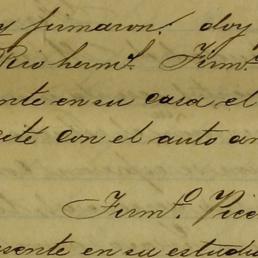 y firmaron: doy
Rio hermº. Firmº.
nte en su casa el
cité con el auto an
Firmº. Vice
sente en su estudio